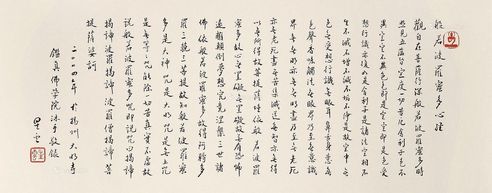 般若波羅蜜多心經
觀自在菩薩行深般若波羅蜜多時
照見五蘊皆空度一切苦厄舍利子色不
異空空不異色色即是空空即是色受
想行識亦復如是舍利子是諸法空相不
生不滅不垢不淨不增不減是故空中無
色無受想行識無眼耳鼻舌身意無
色聲香味觸法無眼界乃至無意識
界無無明亦無無明盡乃至無老死
亦無老死盡無苦集滅道無智亦無得
以無所得故菩提薩埵依般若波羅
蜜多故心無罣礙無罣礙故無有恐怖
遠離顛倒夢想究竟涅槃三世諸
佛依般若波羅蜜多故得阿耨多
羅三藐三菩提故知般若波羅蜜
多是大神咒是大明咒是無上咒
是無等等咒能除一切苦真實不虛故
說般若波羅蜜多咒即說咒曰揭諦
揭諦波羅揭諦波羅僧揭諦菩
提薩婆訶
二〇一四年於揚州大明寺
鑑真佛學院沐手敬錄
星雲